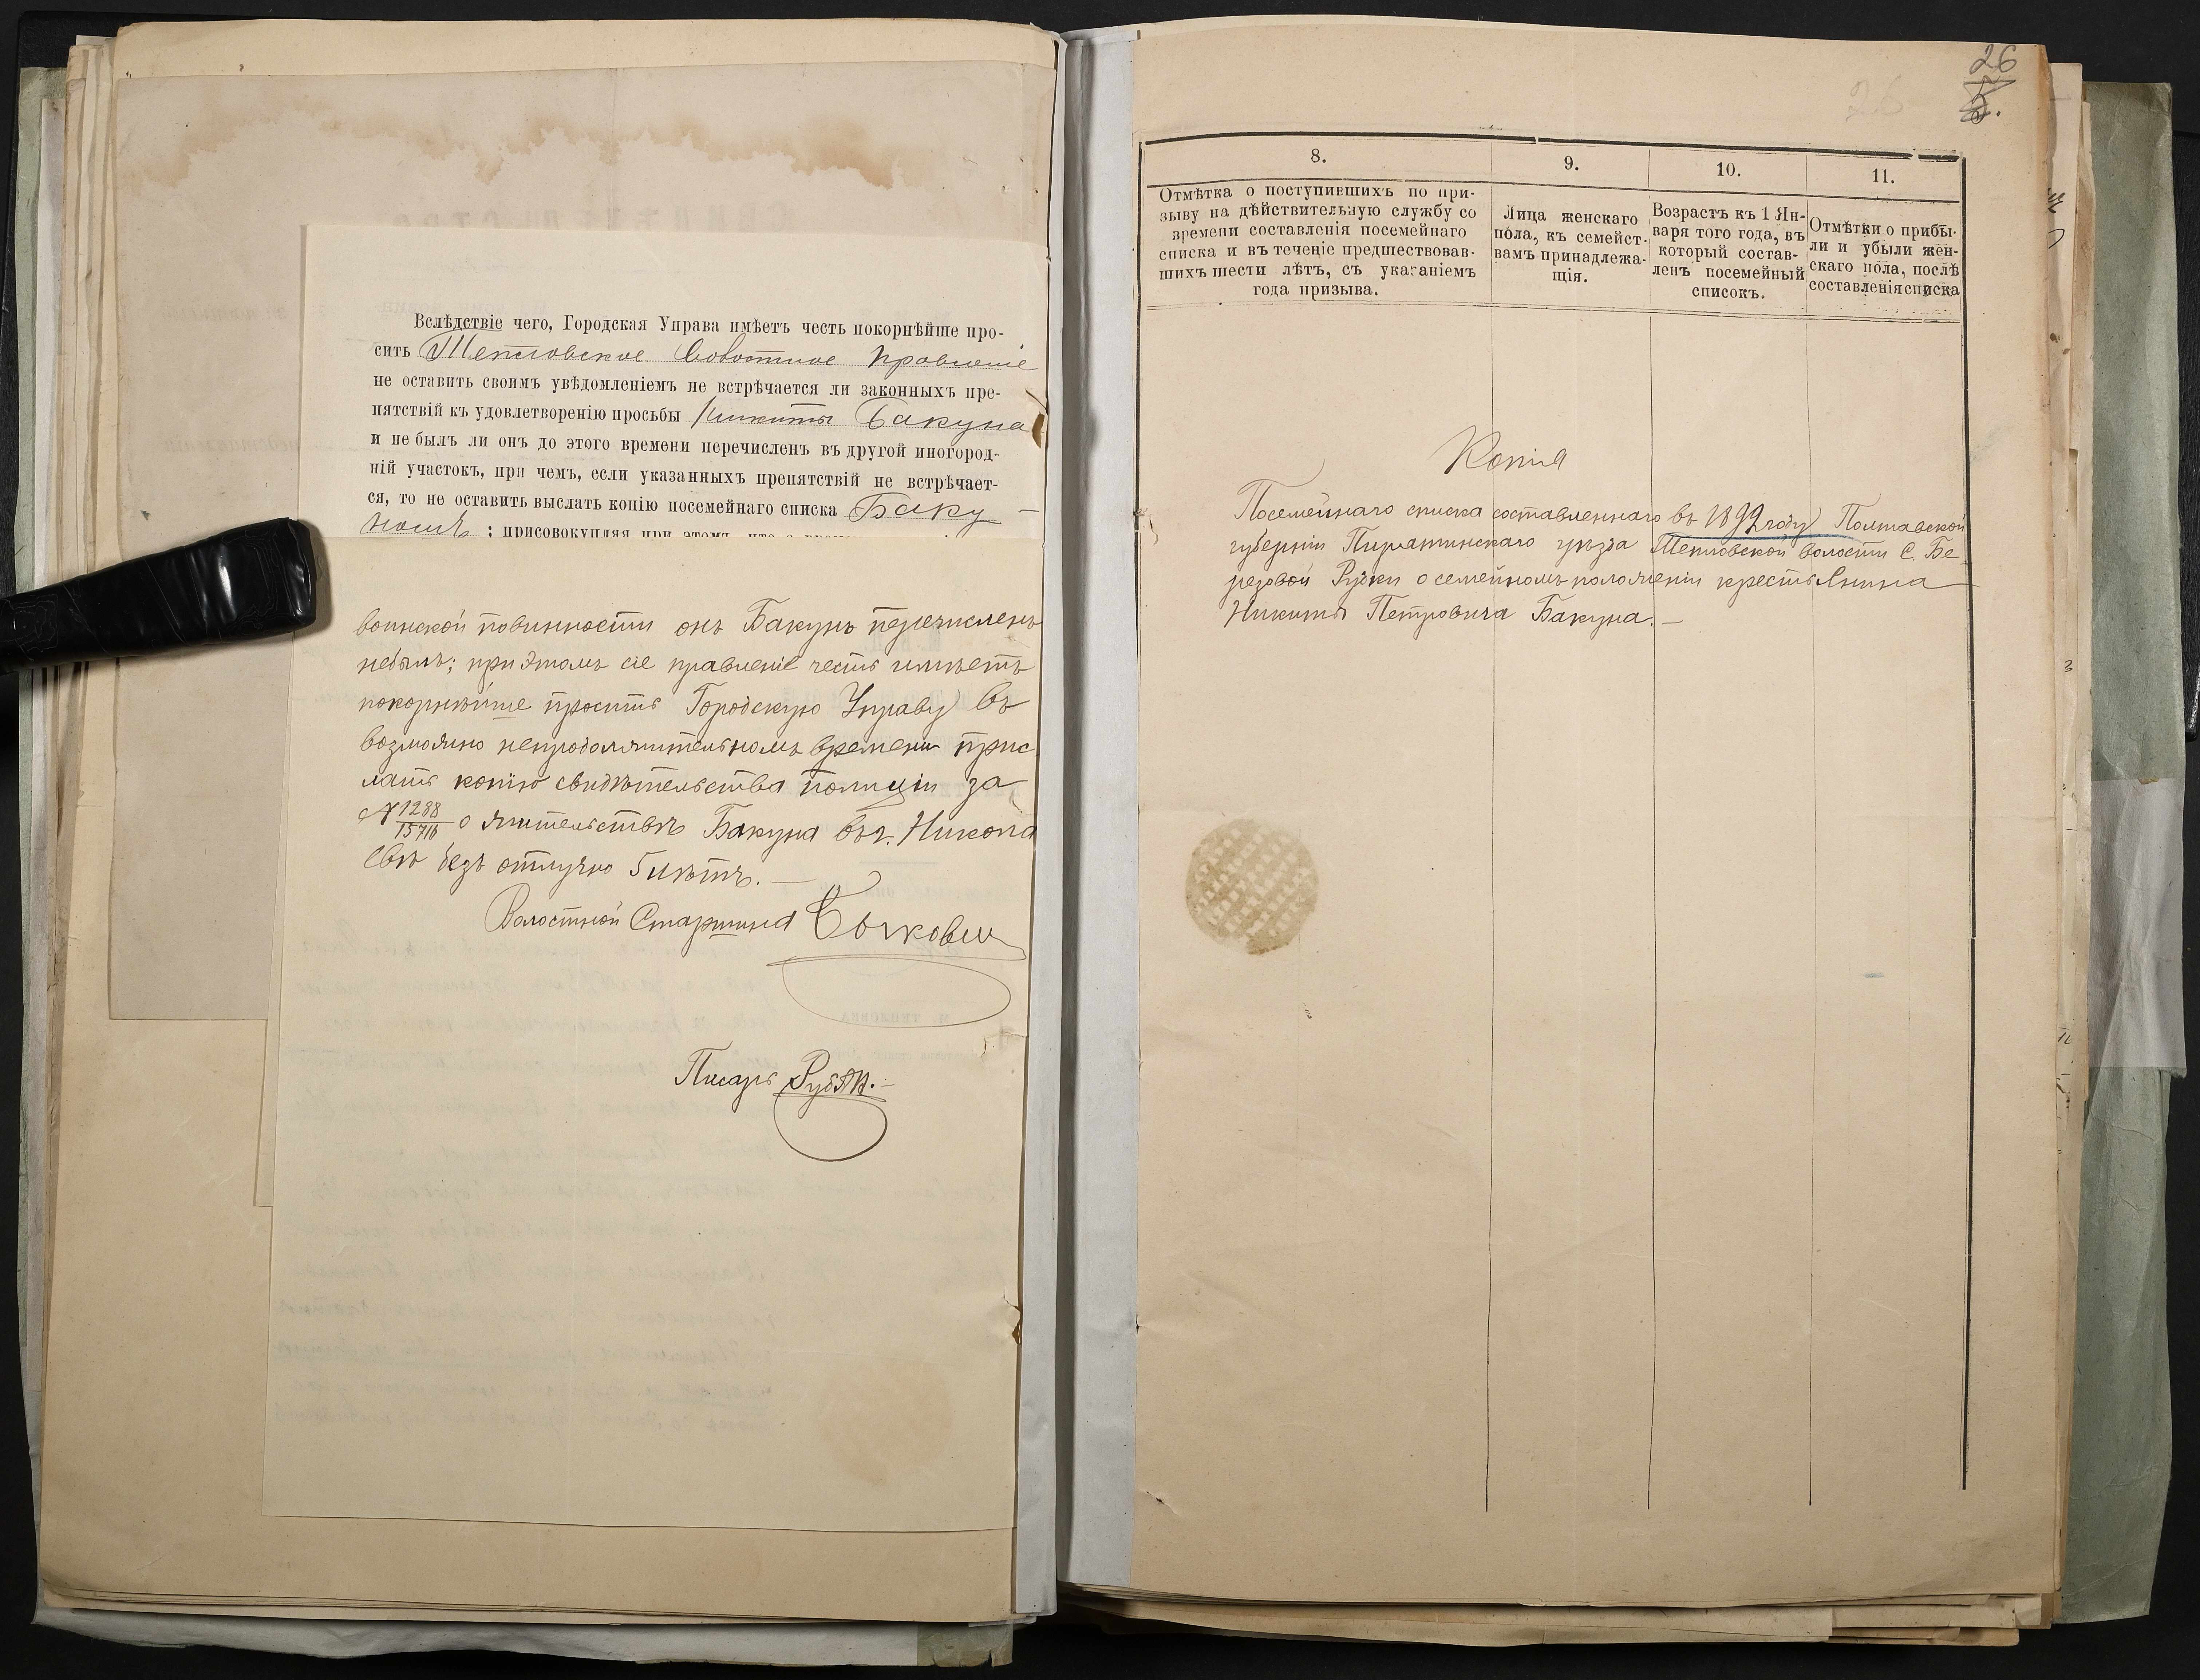 Вслѣдствіе чего, Городская Управа имѣетъ честь покорнѣйше про-
сить Тепловское Волостное Правленіе
не оставить своимъ увѣдомленіемъ не встрѣчается ли законныхъ пре-
пятствій къ удовлетворенію просьбы Никиты Бакуна
и не былъ ли онъ до этого времени перечисленъ въ другой иногород-
ній участокъ, при чемъ, если указанныхъ препятствій не встрѣчает-
ся, то не оставить выслать копію посемейнаго списка Баку-
; присовокупляя при этомъ, что
воинской повинности онъ Бакунъ перечисленъ
небылъ; при этомъ сіе правленіе честь имѣетъ
покорнѣйше просить Городскую Управу въ
возможно непродолжительномъ времени прис
лать копію свидѣтельства полиціи за
№ 1288/15716 о жительствѣ Бакуна въ г. Никола
евѣ безъ отлучно 5 лѣтъ.—
Волостной Старшина
Писарь
26
26
5.
8.
9.
10.
11.
Отмѣтка о поступившихъ по при-
зыву на дѣйствительную службу со
времени составленія посемейнаго
списка и въ теченіе предшествовав-
шихъ шести лѣтъ, съ указаніемъ
года призыва.
Лица женскаго
пола, къ семейст-
вамъ принадлежа-
щія.
Возрастъ къ 1 Ян-
варя того года, въ
который состав-
ленъ посемейный
списокъ.
Отмѣтки о прибы-
ли и убыли жен-
скаго пола, послѣ
составленія списка
Копія
Посемейнаго списка составленнаго въ 1892 году Полтавской
губерніи Пирятинскаго уѣзда Тепловской волости С. Бе-
резовой Рудки о семейномъ положеніи крестьянина
Никиты Петровича Бакуна.—